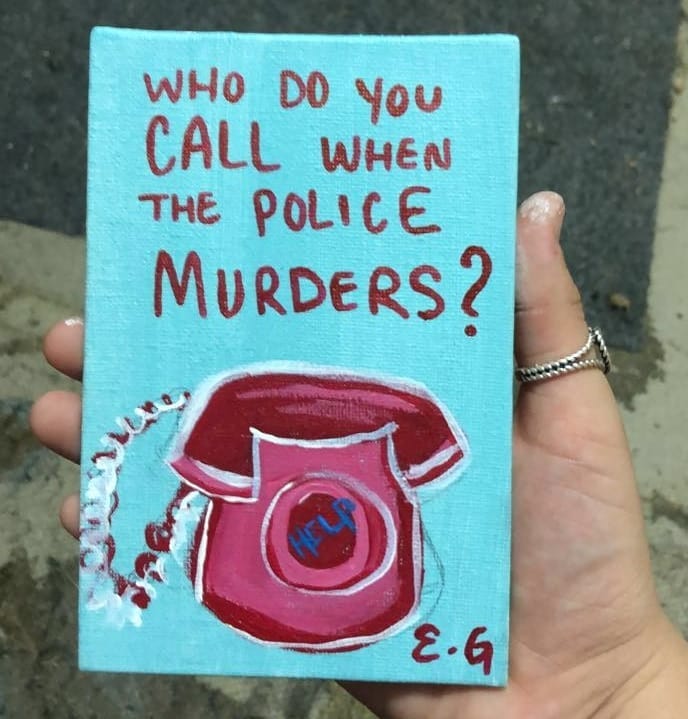 WHO DO YOU
CALL WHEN
THE POLICE
MURDERS?
HELP
E.G